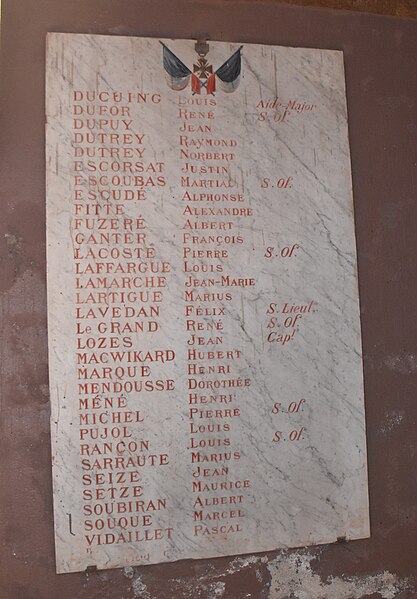 DUCUING LOUIS Aide-Major
DUFOR RENÉ S. Of.
DUPUY JEAN
DUTREY RAYMOND
DUTREY NORBERT
ESCORSAT JUSTIN
ESCOUBAS MARTIAL S. Of.
ESQUDÉ ALPHONSE
FITTE ALEXANDRE
FUZÉRÉ ALBERT
GANTER FRANÇOIS
LACOSTE PIERRE S. Of.
LAFFARGUE LOUIS
LAMARCHE JEAN-MARIE
LARTIGUE MARIUS
LAVEDAN FÉLIX S. Lieut.
Le GRAND RENÉ S. Of.
LOZES JEAN Capt
MACWIKARD HUBERT
MARQUE HENRI
MENDOUSSE DOROTHÉE
MÉNÉ HENRI
MICHEL PIERRE S. Of.
PUJOL LOUIS
RANÇON LOUIS S. Of.
SARRAUTE MARIUS
SEIZE JEAN
SETZE MAURICE
SOUBIRAN ALBERT
SOUQUE MARCEL
VIDAILLET PASCAL